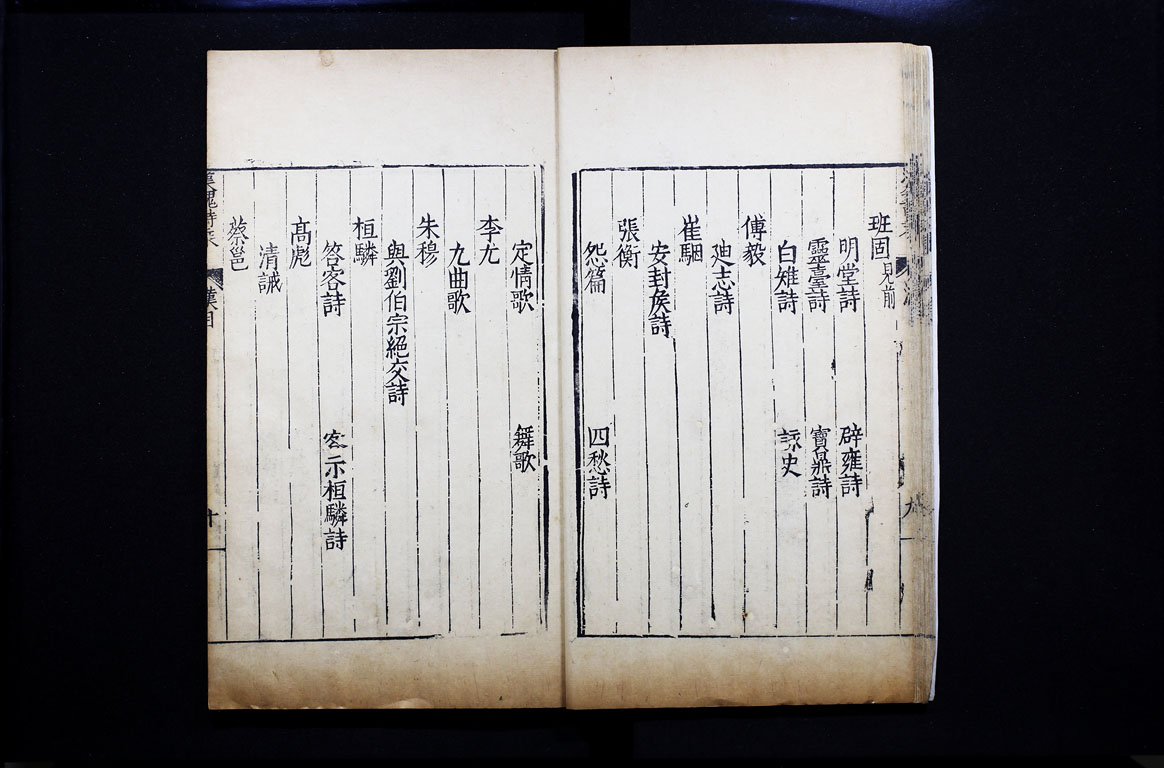 班固見前
明堂詩 辟雍詩
靈臺詩 寶鼎詩
白雉詩 詠史
傅毅
廸志詩
崔駰
安封侯詩
張衡
怨篇 四愁詩
定情歌 舞歌
李尤
九曲歌
朱穆
與劉伯宗絕交詩
桓驎
答客詩 客示桓驎詩
髙彪
清誡
蔡邕
漢魏詩乘 漢目 十一